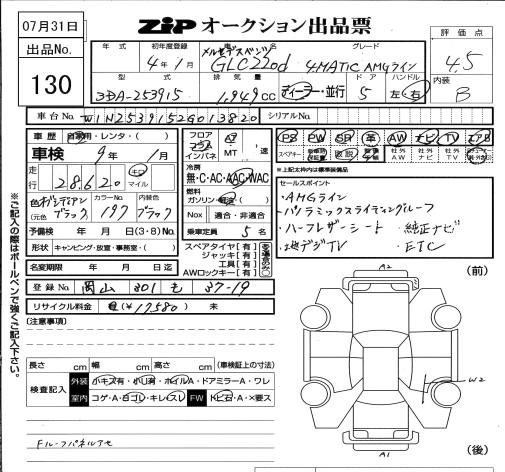 07月31日
ZIP オークション出品票
評価点
4.5
内装
B
出品No.
130
年式 初年度登録 車名 グレード
4年1月 メルセデスベンツ GLC220d 4MATIC AMGライン
型式 排気量 ドア ハンドル
3DA-253915 1,949cc ディーラー・並行 5 左・右
車台No. W1N2539152G013820 シリアルNo.
車歴 自家用・レンタ・( )
車検 9年1月
走行 28,620 キロ マイル
色 オブシディアンブラック (元色 ブラック) カラーNo. 197 内装色 ブラック
予備検 年 月 日(3・8)モノ
形状 キャンピング・放置・事務室・( )
名変期限 年 月 日迄
登録No. 岡山 301 も 37-19
リサイクル料金 (¥17,580) 未
フロア コラム インパネ
A7 MT 速
冷房
無・C・AC・AAC・WAC
燃料
ガソリン・軽油・( )
Nox 適合・非適合
乗車定員 5名
スペアタイヤ[有]
ジャッキ[有]
工具[有]
AWロックキー[有]
PS PW SR 革 AW ナビ TV エアB
スペアキー 取説 社外AW 社外ナビ 社外TV
※上記太枠内は標準装備品
セールスポイント
・AMGライン
・パノラミックスライディングルーフ
・ハーフレザーシート ・純正ナビ
・地デジTV ・ETC
(注意事項)
長さ cm 幅 cm 高さ cm (車検証上の寸法)
検査記入
外装 小キズ有・小凹有・ホイルA・ドアミラーA・ワレ
室内 コゲ・A・白ゴレ・キレ・スレ FW 飛石・A・×要ス
Fルーフパネルアセ
※ご記入の際はボールペンで強くご記入下さい。
(前)
A2
W2
A1
(後)